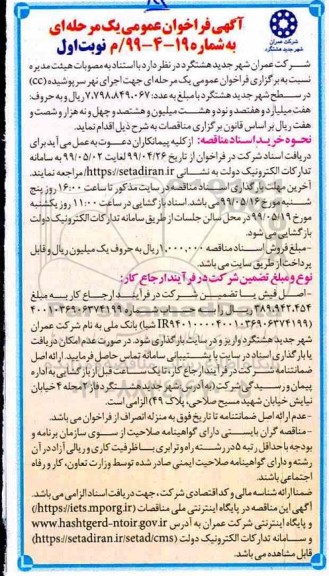 شرکت عمران
شهر جدید هشتگرد
آگهی فراخوان عمومی یک مرحله‌ای
به شماره ۱۹-۴-۹۹/م نوبت اول
شرکت عمران شهر جدید هشتگرد در نظر دارد با استناد به مصوبات هیئت مدیره
نسبت به برگزاری فراخوان عمومی یک مرحله‌ای جهت اجرای نهر سرپوشیده (cc)
در سطح شهر جدید هشتگرد با مبلغ به عدد: ۷,۷۹۸,۸۴۹,۰۶۷ ریال و به حروف:
هفت میلیارد و هفتصد و نود و هشت میلیون و هشتصد و چهل و نه هزار و شصت و
هفت ریال بر اساس قانون برگزاری مناقصات به شرح ذیل اقدام نماید.
نحوه خرید اسناد مناقصه: از کلیه پیمانکاران دعوت به عمل می آید برای
دریافت اسناد شرکت در فراخوان از تاریخ ۹۹/۰۴/۲۶ لغایت ۹۹/۰۵/۰۲ به سامانه
تدارکات الکترونیک دولت به نشانی https://setadiran.ir/ مراجعه نمایند.
آخرین مهلت بارگذاری اسناد مناقصه در سایت مذکور تا ساعت ۱۶:۰۰ روز پنج
شنبه مورخ ۹۹/۰۵/۱۶ می باشد. اسناد بازگشایی در ساعت ۱۱:۰۰ روز یکشنبه
مورخ ۹۹/۰۵/۱۹ در محل سالن جلسات از طریق سامانه تدارکات الکترونیک دولت
بازگشایی می شود.
-مبلغ فروش اسناد مناقصه ۱,۰۰۰,۰۰۰ ریال به حروف یک میلیون ریال و قابل
پرداخت از طریق سایت می باشد.
نوع و مبلغ تضمین شرکت در فرآیند ارجاع کار:
-اصل فیش یا تضمین شرکت در فرآیند ارجاع کار به مبلغ
۳۸۹,۹۴۲,۴۵۴
شهر جدید هشتگرد واریز و در سایت بارگذاری شود. در صورت عدم امکان دریافت
یا بارگذاری اسناد در سایت با پشتیبانی سامانه تماس حاصل فرمایید. ارائه اصل
ضمانتنامه شرکت در فرآیند ارجاع کار، تا یک ساعت قبل از بازگشایی به اداره
پیمان و رسیدگی شرکت (به آدرس شهر جدید هشتگرد فاز ۲ محله ۴ خیابان
نیایش خیابان شهید مسیح صلاحی، پلاک ۴۹) الزامی است.
-عدم ارائه اصل ضمانتنامه تا تاریخ فوق به منزله انصراف از فراخوان می باشد.
-مناقصه گران بایستی دارای گواهینامه صلاحیت از سوی سازمان برنامه و
بودجه با حداقل رتبه ۵ در رشته راه و ترابری با ظرفیت کاری و ریالی آزاد در آن
رشته و دارای گواهینامه صلاحیت ایمنی صادر شده توسط وزارت تعاون، کار و رفاه
اجتماعی باشند.
ضمناً ارائه شناسه ملی و کد اقتصادی شرکت، جهت دریافت اسناد الزامی می باشد.
آگهی این مناقصه در پایگاه اینترنتی ملی مناقصات (https://iets.mporg.ir/)
و پایگاه اینترنتی شرکت عمران به آدرس www.hashtgerd-ntoir.gov.ir
و سامانه تدارکات الکترونیک دولت (https://setadiran.ir/setad/cms)
قابل مشاهده می باشد.